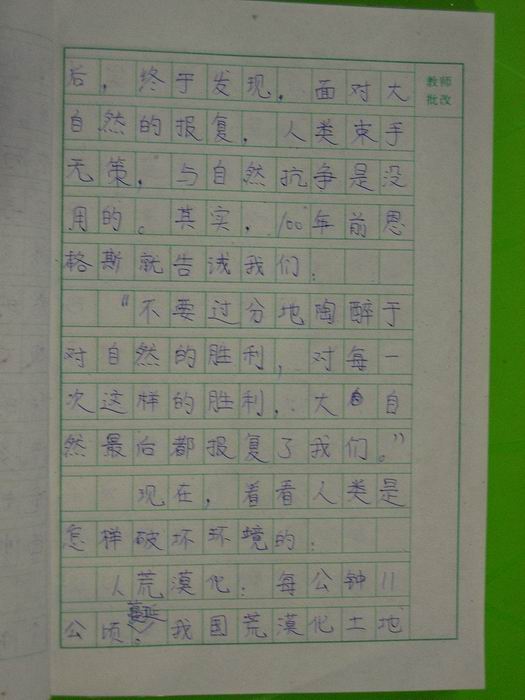 教师
批改
后，终于发现，面对大
自然的报复，人类束手
无策，与自然抗争是没
用的。其实，100年前恩
格斯就告诫我们：
“不要过分地陶醉于
对自然的胜利，对每一
次这样的胜利，大自
然最后都报复了我们。”
现在，看看人类是
怎样破坏环境的：
1荒漠化：每公钟11
蔓延
公顷：我国荒漠化土地